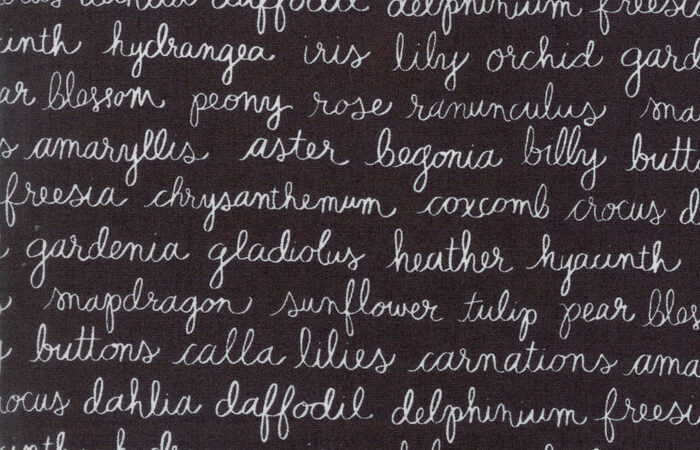 daffodil delphinium freesia
inth hydrangea iris lily orchid gard
ar blossom peony rose ranunculus sna
s amaryllis aster begonia billy butt
freesia chrysanthemum coxcomb crocus d
gardenia gladiolus heather hyacinth
snapdragon sunflower tulip pear blos
buttons calla lilies carnations ama
ocus dahlia daffodil delphinium freesi